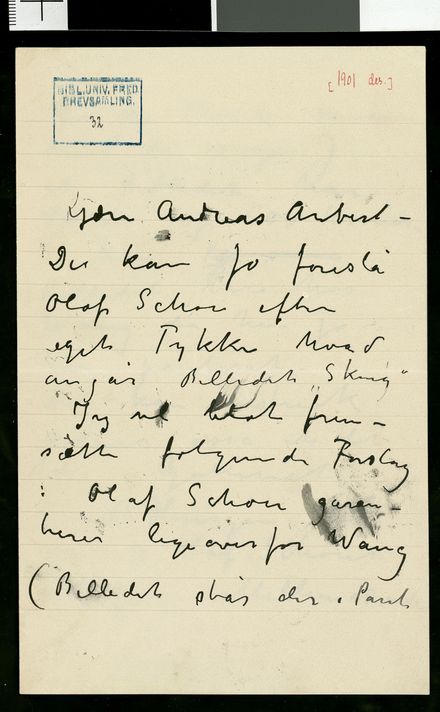 BIBL.UNIV.FRED.
BREVSAMLING.
32
[1901 des.]
Kjære Andreas Aubert –
Du kan jo foreslå
Olaf Schou efter
eget Tykke hvad
angår Billedet „Skrig"
Jeg vil blot frem-
sætte følgende Forslag
: Olaf Schou garan-
terer ligeoverfor Wang
(Billedet står der i Pant